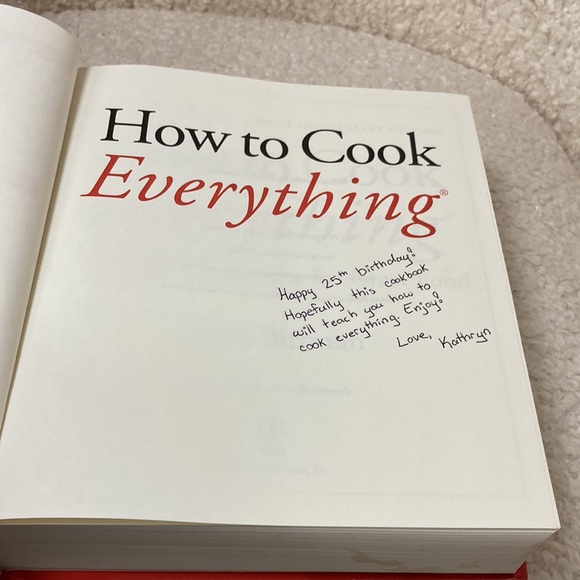 How to Cook
Everything®
Happy 25th birthday!
Hopefully this cookbook
will teach you how to
cook everything. Enjoy!
Love, Kathryn